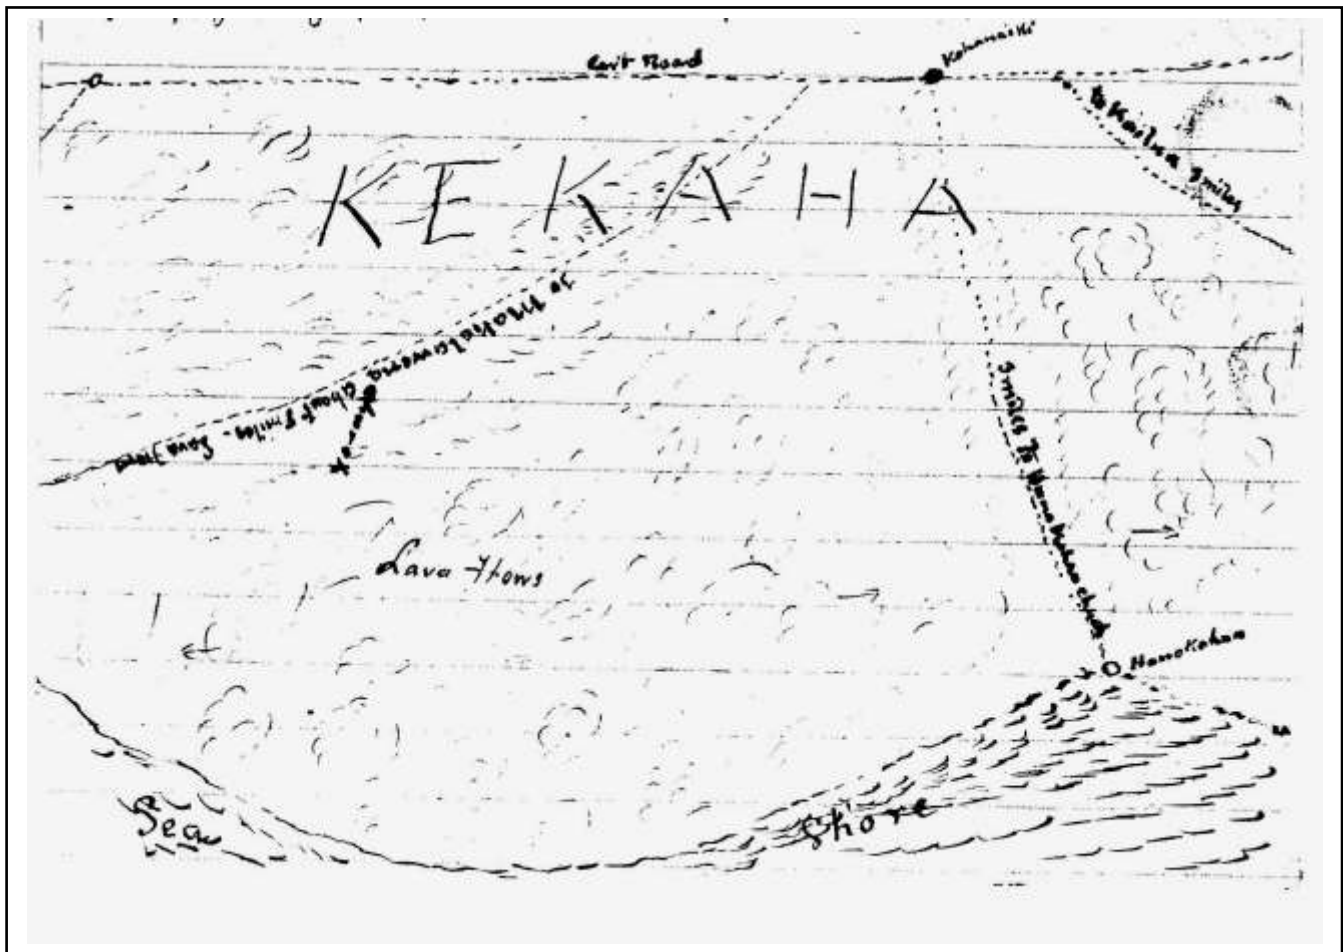 Cart Road
Kohanaiki
to Kailua 9 miles
KEKAHA
to Mahaiawena about 8 miles. Lava flows
3 miles To Honokohau
Lava Flows
Honokohau
Sea
Shore